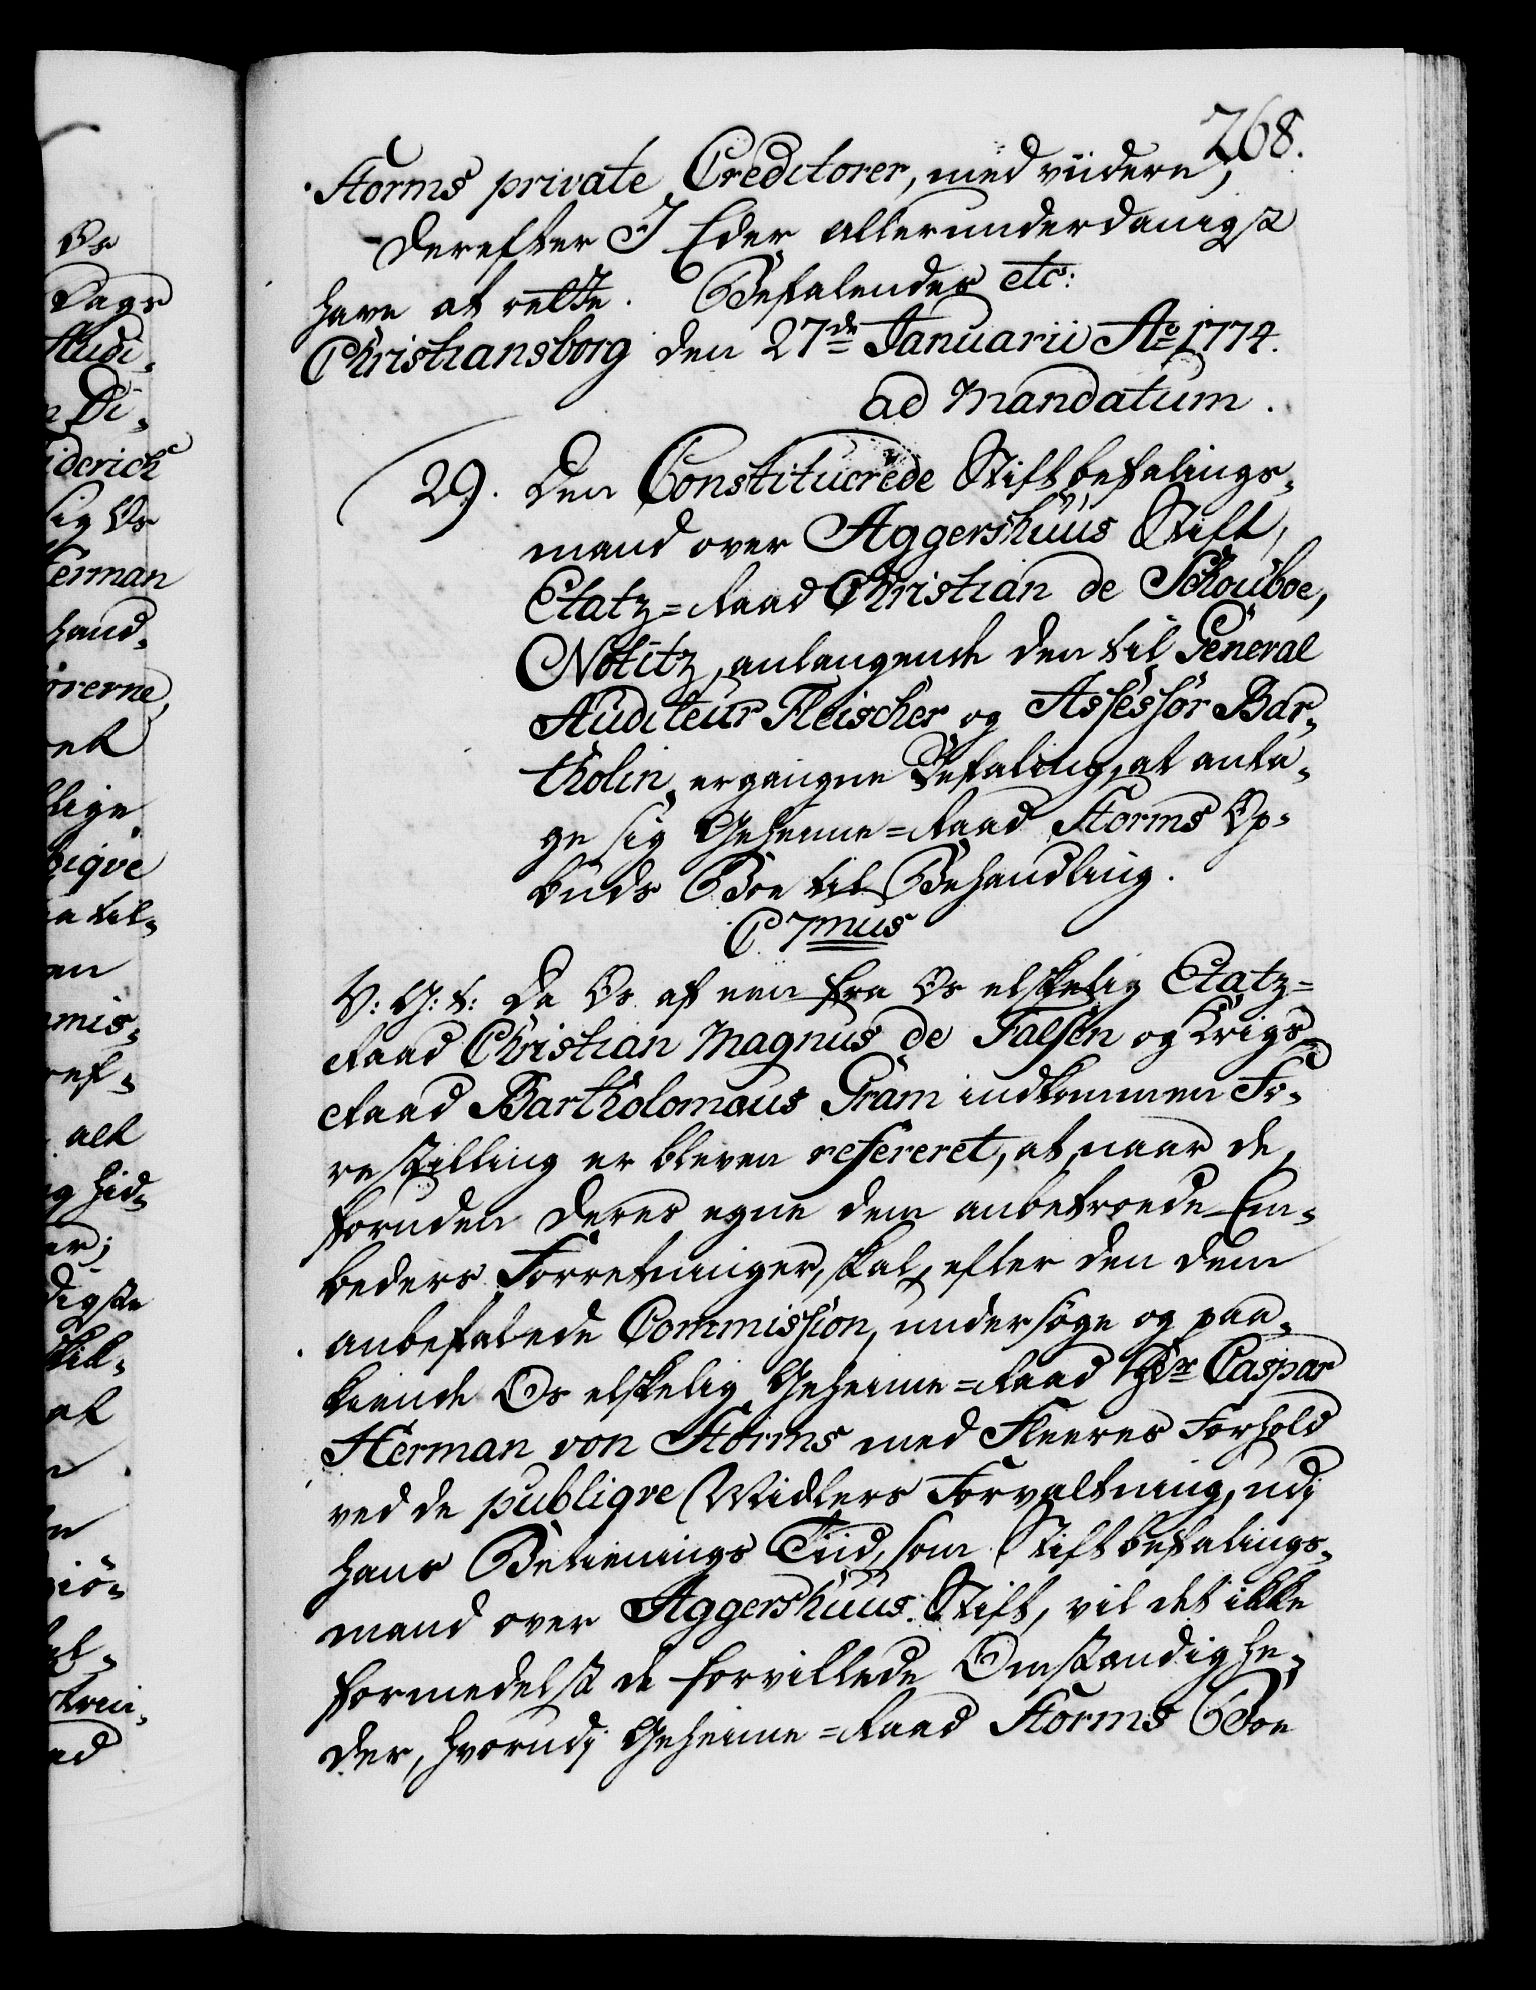 268.
Storms private Creditorer, med viidere,
Derefter I Eder allerunderdanigst
have at rette. Befalendes etc:
Christiansborg den 27de Januarii Ao 1774.
ad Mandatum.
29. Den Constituerede Stiftbefalings-
mand over Aggershuus Stift,
Etatz-Raad Christian de Schouboe,
Notitz, anlangende den til General
Auditeur Fleischer og Assessor Bar-
tholin ergangne Befaling, at anta-
ge sig Geheime-Raad Storms Op-
buds Boe til Behandling.
C 7mus
V: G: t: Da Os af een fra Os elskelig Etatz-
Raad Christian Magnus de Falsen og Krigs-
Raad Bartholomæus Gram indkommen Fo-
restilling er bleven refereret, at naar de,
foruden deres egne dem anbetroede Em-
beders Forretninger, skal, efter den dem
anbefalede Commission, undersøge og paa-
kiende Os elskelig Geheime-Raad Hr Caspar
Herman von Storms med Fleeres Forhold
ved de publiqve Midlers Forvaltning, udj
hans Betienings Tiid, som Stiftbefalings-
mand over Aggershuus Stift, vil det ikke
formedelst de forvillede Omstændighe-
der, hvorudj Geheime-Raad Storms Boe
Os
Dags
Audi-
Di-
iderich
sig Os
Herman
hand-
orerne,
ret
lige
biqve
til-
en
mis-
ref-
alt
og hid-
er;
digste
skil-
at